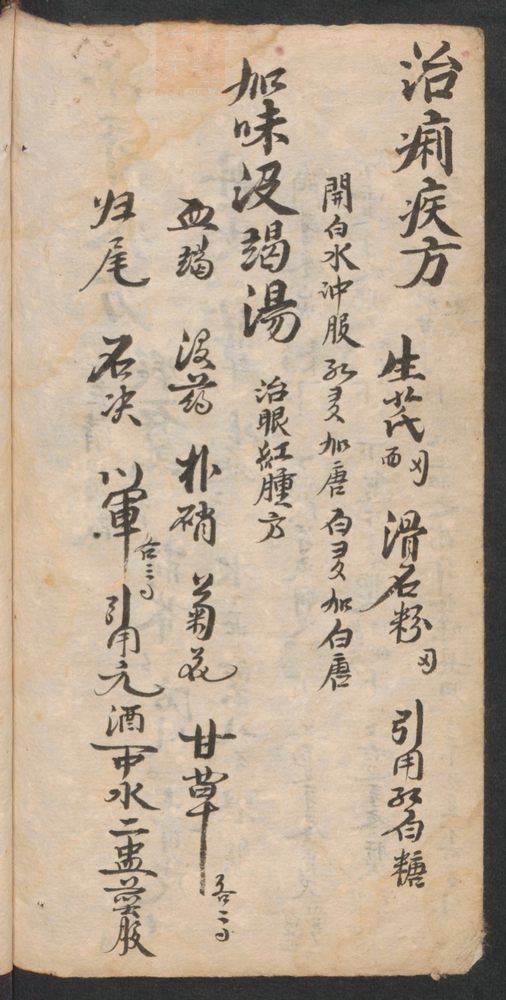 治痢疾方
生芪 滑石粉 引用红白糖
開白水冲服 红多加唐 白多加白唐
加味没竭湯 治眼红腫方
血竭 没药 朴硝 菊花 甘草 各二
归尾 石决 川軍 各三 引用元酒 水二盅煎服